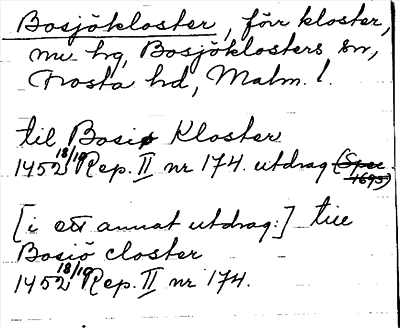 Bosjökloster, förr kloster,
nu hg, Bosjöklosters sn,
Frosta hd, Malm. l.
til Bosiø Kloster
1452 18/10 Rep. II nr 174. utdrag (Spec. 1695)
[i ett annat utdrag:] till
Bosiö closter
1452 18/10 Rep. II nr 174.